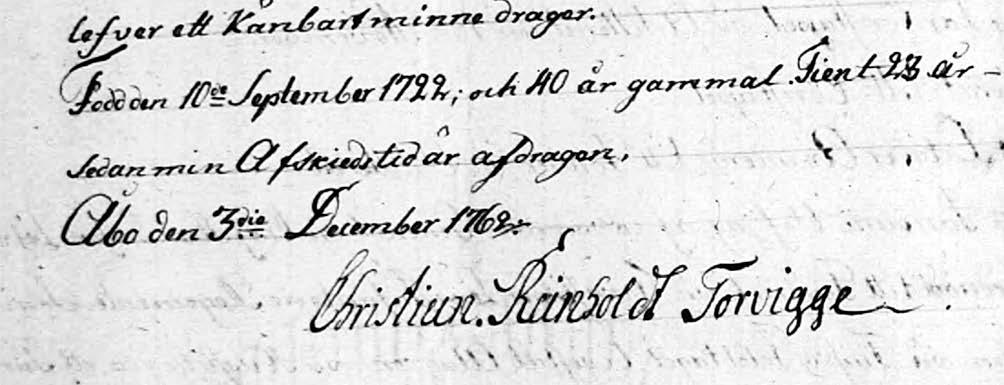 lefver ett Kånbart minne drager.
Född den 10de September 1722; och 40 år gammal. Tient 23 år -
sedan min Afskiedstid är afdragen.
Åbo den 3die December 1762:
Christian. Reinholdt Torvigge